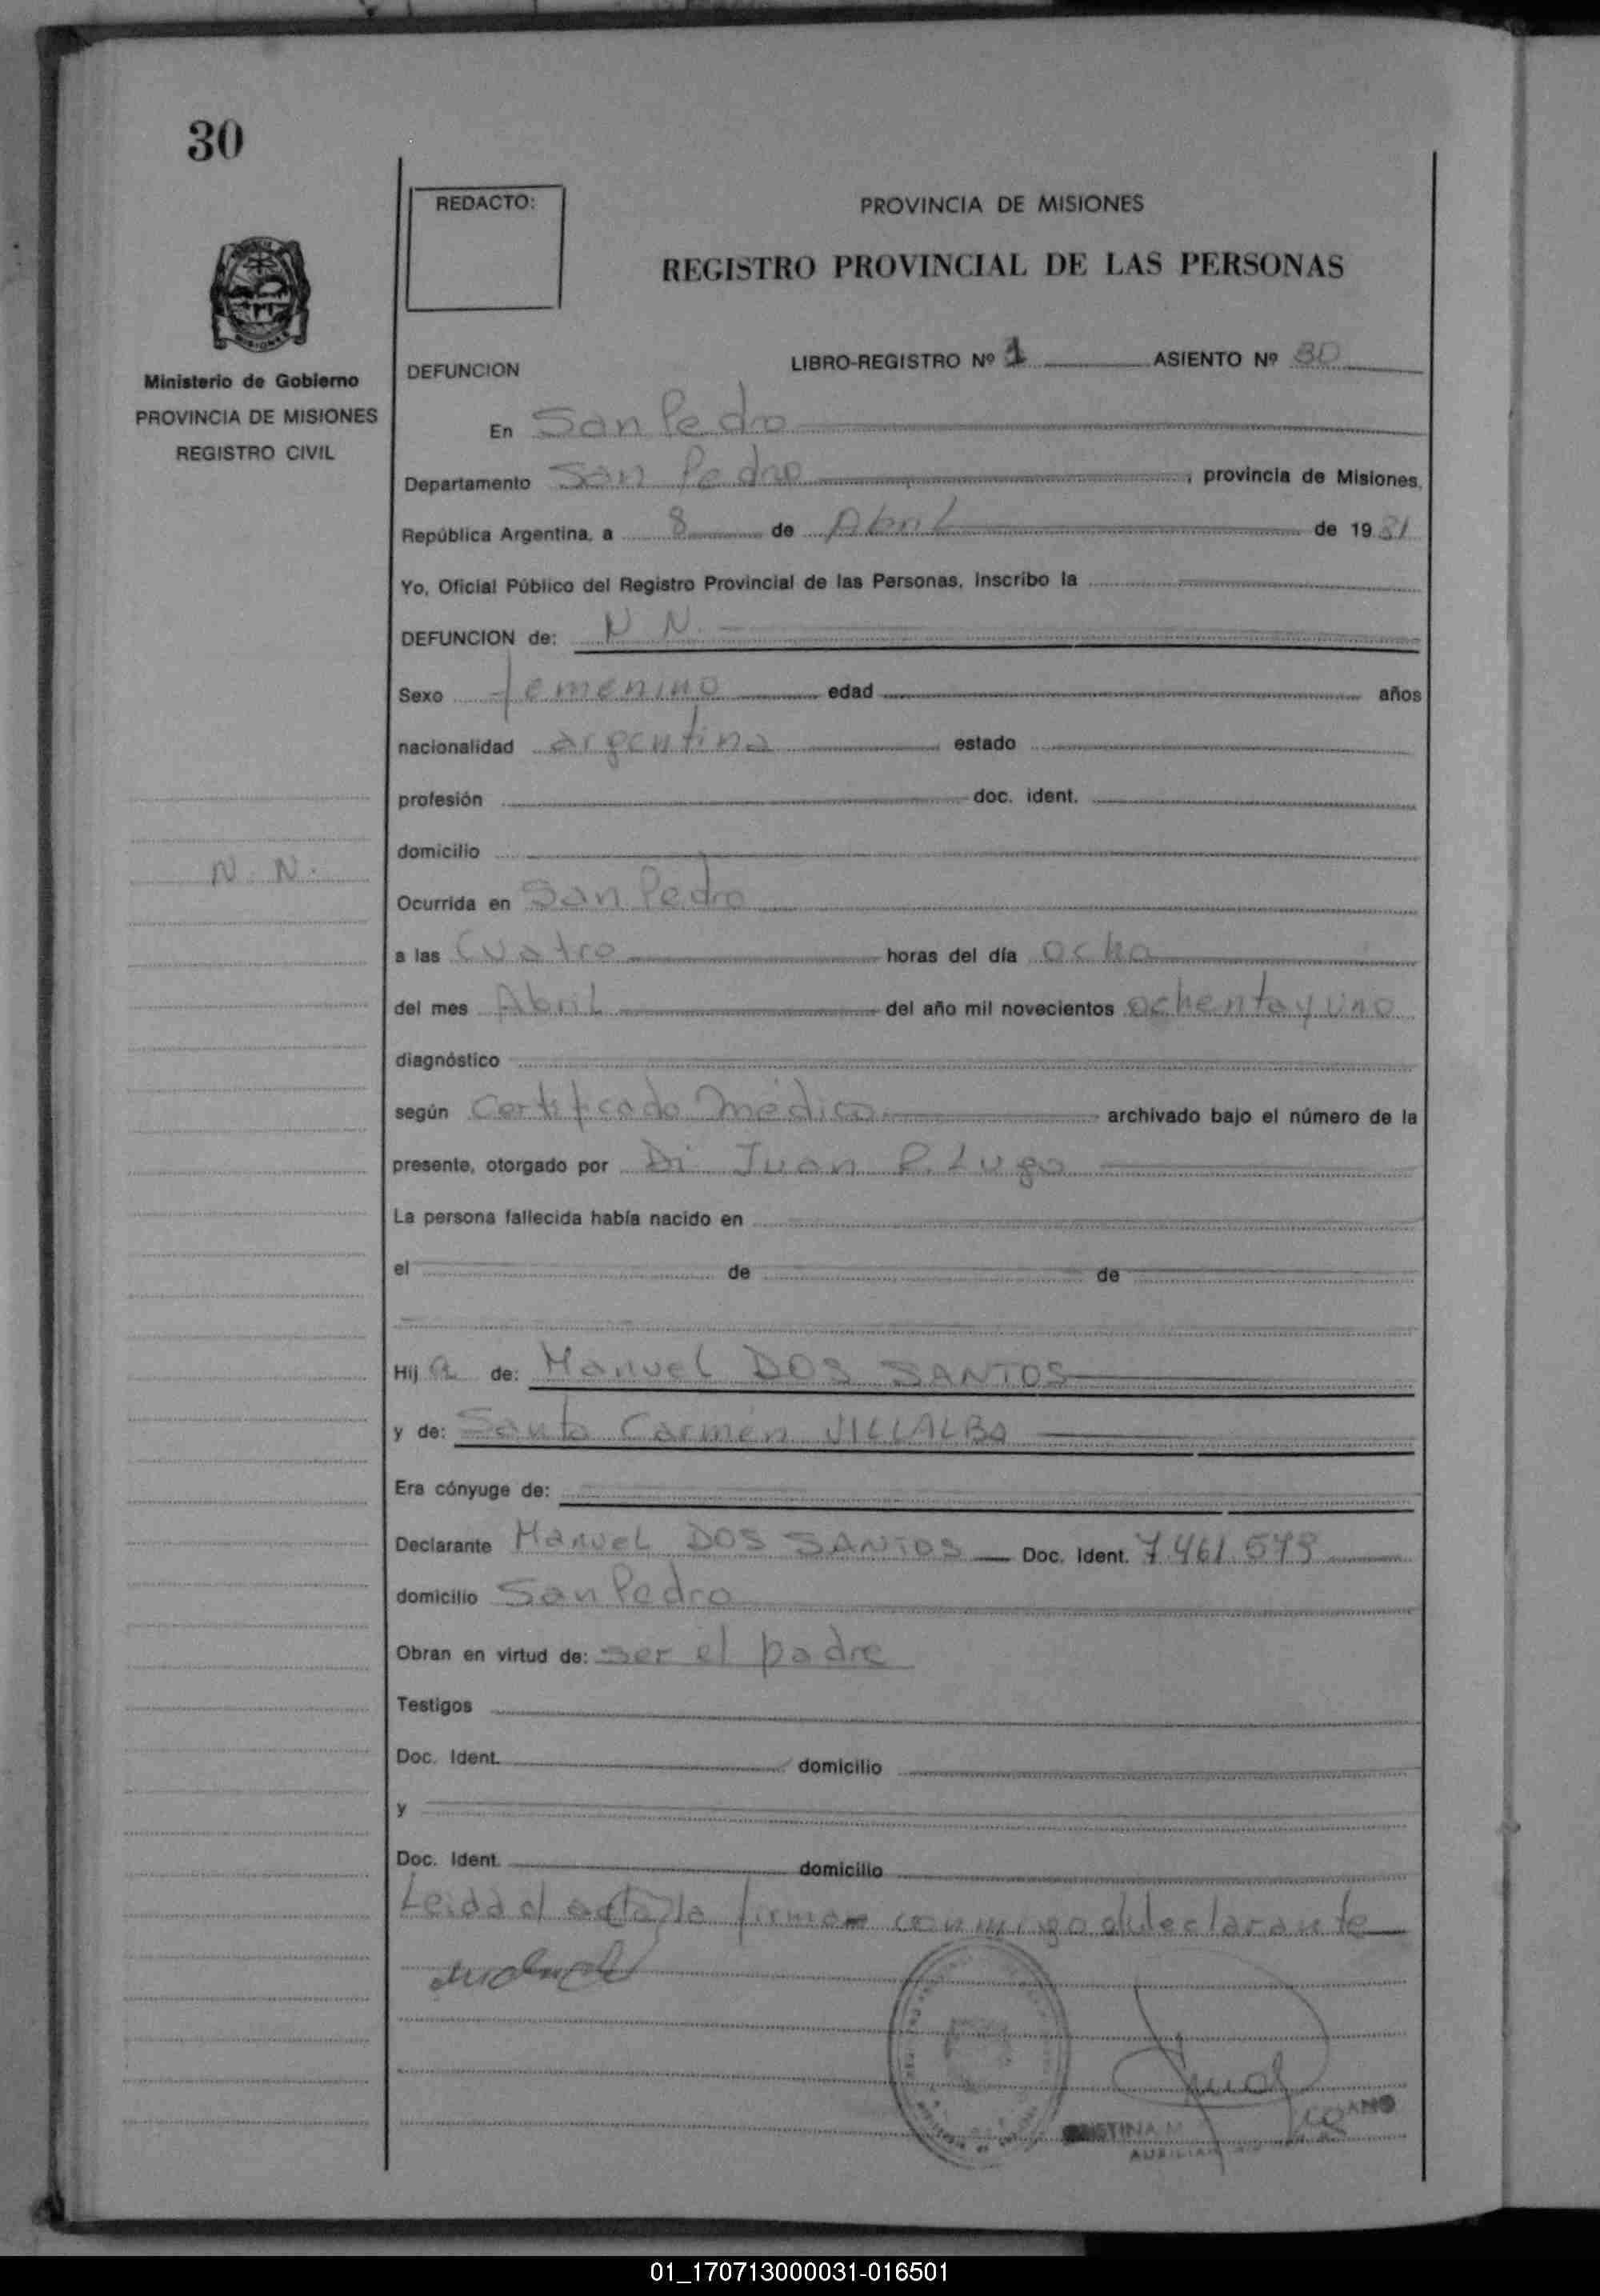 30
REDACTO:
PROVINCIA DE MISIONES
REGISTRO PROVINCIAL DE LAS PERSONAS
MISIONES
Ministerio de Gobierno
PROVINCIA DE MISIONES
REGISTRO CIVIL
DEFUNCION LIBRO-REGISTRO Nº 1 ASIENTO Nº 30
En San Pedro
Departamento San Pedro, provincia de Misiones,
República Argentina, a 8 de Abril de 1981
Yo, Oficial Público del Registro Provincial de las Personas, inscribo la
DEFUNCION de: N N.
Sexo femenino edad años
nacionalidad argentina estado
profesión doc. ident.
domicilio
N. N.
Ocurrida en San Pedro
a las Cuatro horas del día ocho
del mes Abril del año mil novecientos ochenta y uno
diagnóstico
según Certificado Médico archivado bajo el número de la
presente, otorgado por Juan P. Lugo
La persona fallecida había nacido en
el de de
Hija de: Manuel DOS SANTOS
y de: Santa Carmen VILLALBA
Era cónyuge de:
Declarante Manuel DOS SANTOS Doc. Ident. 7.461.579
domicilio San Pedro
Obran en virtud de: ser el padre
Testigos
Doc. Ident. domicilio
y
Doc. Ident. domicilio
Leida el acta, la firma conmigo el declarante
AUXILIAR
01_170713000031-016501